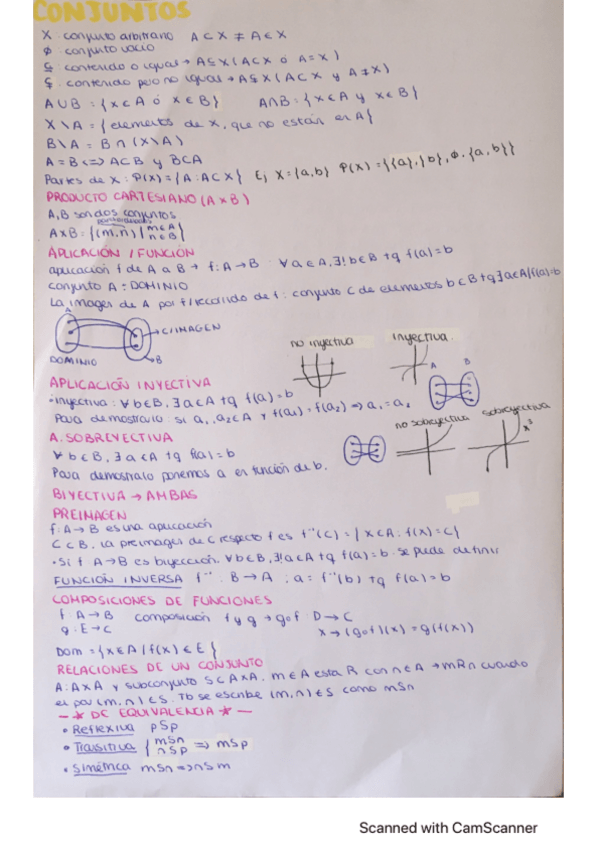 CONJUNTOS
X : conjunto arbitrario A ⊂ X ≠ A ∈ X
∅ : conjunto vacio
⊆ : contenido o igual → A ⊆ X (A ⊂ X ó A = X)
⊊ : contenido pero no igual → A ⊊ X (A ⊂ X y A ≠ X)
A ∪ B = {x ∈ A ó x ∈ B} A ∩ B = {x ∈ A y x ∈ B}
X \ A = { elementos de X, que no están en A {
B \ A = B ∩ (X \ A)
A = B <=> A ⊂ B y B ⊂ A
Partes de X : P(X) = { A : A ⊂ X} Ej X = {a,b} P(X) = {{a}, }b}, ∅, {a,b}}
PRODUCTO CARTESIANO (A x B)
A, B son dos conjuntos
A x B = {(m,n) | m ∈ A n ∈ B}
APLICACIÓN / FUNCIÓN
aplicación f de A a B → f: A → B ∀ a ∈ A, ∃! b ∈ B tq f(a) = b
conjunto A = DOMINIO
La imagen de A por f / recorrido de f : conjunto C de elementos b ∈ B tq ∃ a ∈ A / f(a) = b
A
C / IMAGEN
DOMINIO
B
no inyectiva
inyectiva
A B
APLICACIÓN INYECTIVA
• inyectiva : ∀ b ∈ B, ∃ a ∈ A tq f(a) = b
Para demostrarlo : si a₁, a₂ ∈ A y f(a₁) = f(a₂) => a₁ = a₂
no sobreyectiva
sobreyectiva
x³
A. SOBREYECTIVA
∀ b ∈ B, ∃ a ∈ A tq f(a) = b
Para demostralo ponemos a en función de b.
BIYECTIVA → AMBAS
PREIMAGEN
f: A → B es una aplicación
C ⊂ B, la preimagen de C respecto f es f⁻¹(C) = { x ∈ A : f(x) = C{
• Si f A → B es biyección, ∀ b ∈ B, ∃! a ∈ A tq f(a) = b. se puede definir
FUNCIÓN INVERSA f⁻¹ : B → A ; a = f⁻¹(b) tq f(a) = b
COMPOSICIONES DE FUNCIONES
f A → B composición f y g → gof D → C
g : E → C x → (gof)(x) = g(f(x))
Dom = {x ∈ A / f(x) ∈ E }
RELACIONES DE UN CONJUNTO
A : A x A y subconjunto S ⊂ A x A. m ∈ A esta R con n ∈ A → mRn cuando
el par (m,n) ∈ S. Tb se escribe (m,n) ∈ S como mSn
— * DE EQUIVALENCIA * —
• Reflexiva pSp
• Transitiva { mSn nSp => mSp
• Simétrica mSn => nSm
Scanned with CamScanner